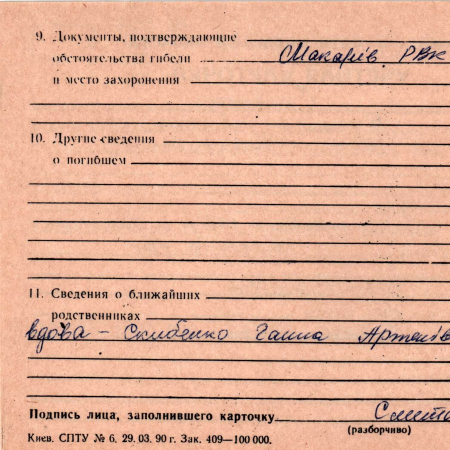 9. Документы, подтверждающие
обстоятельства гибели Макарів. РВК
и место захоронения
10. Другие сведения
о погибшем
11. Сведения о ближайших
родственниках
вдова - Скибенко Ганна
Подпись лица, заполнившего карточку
(разборчиво)
Киев. СПТУ № 6. 29. 03. 90 г. Зак. 409—100 000.